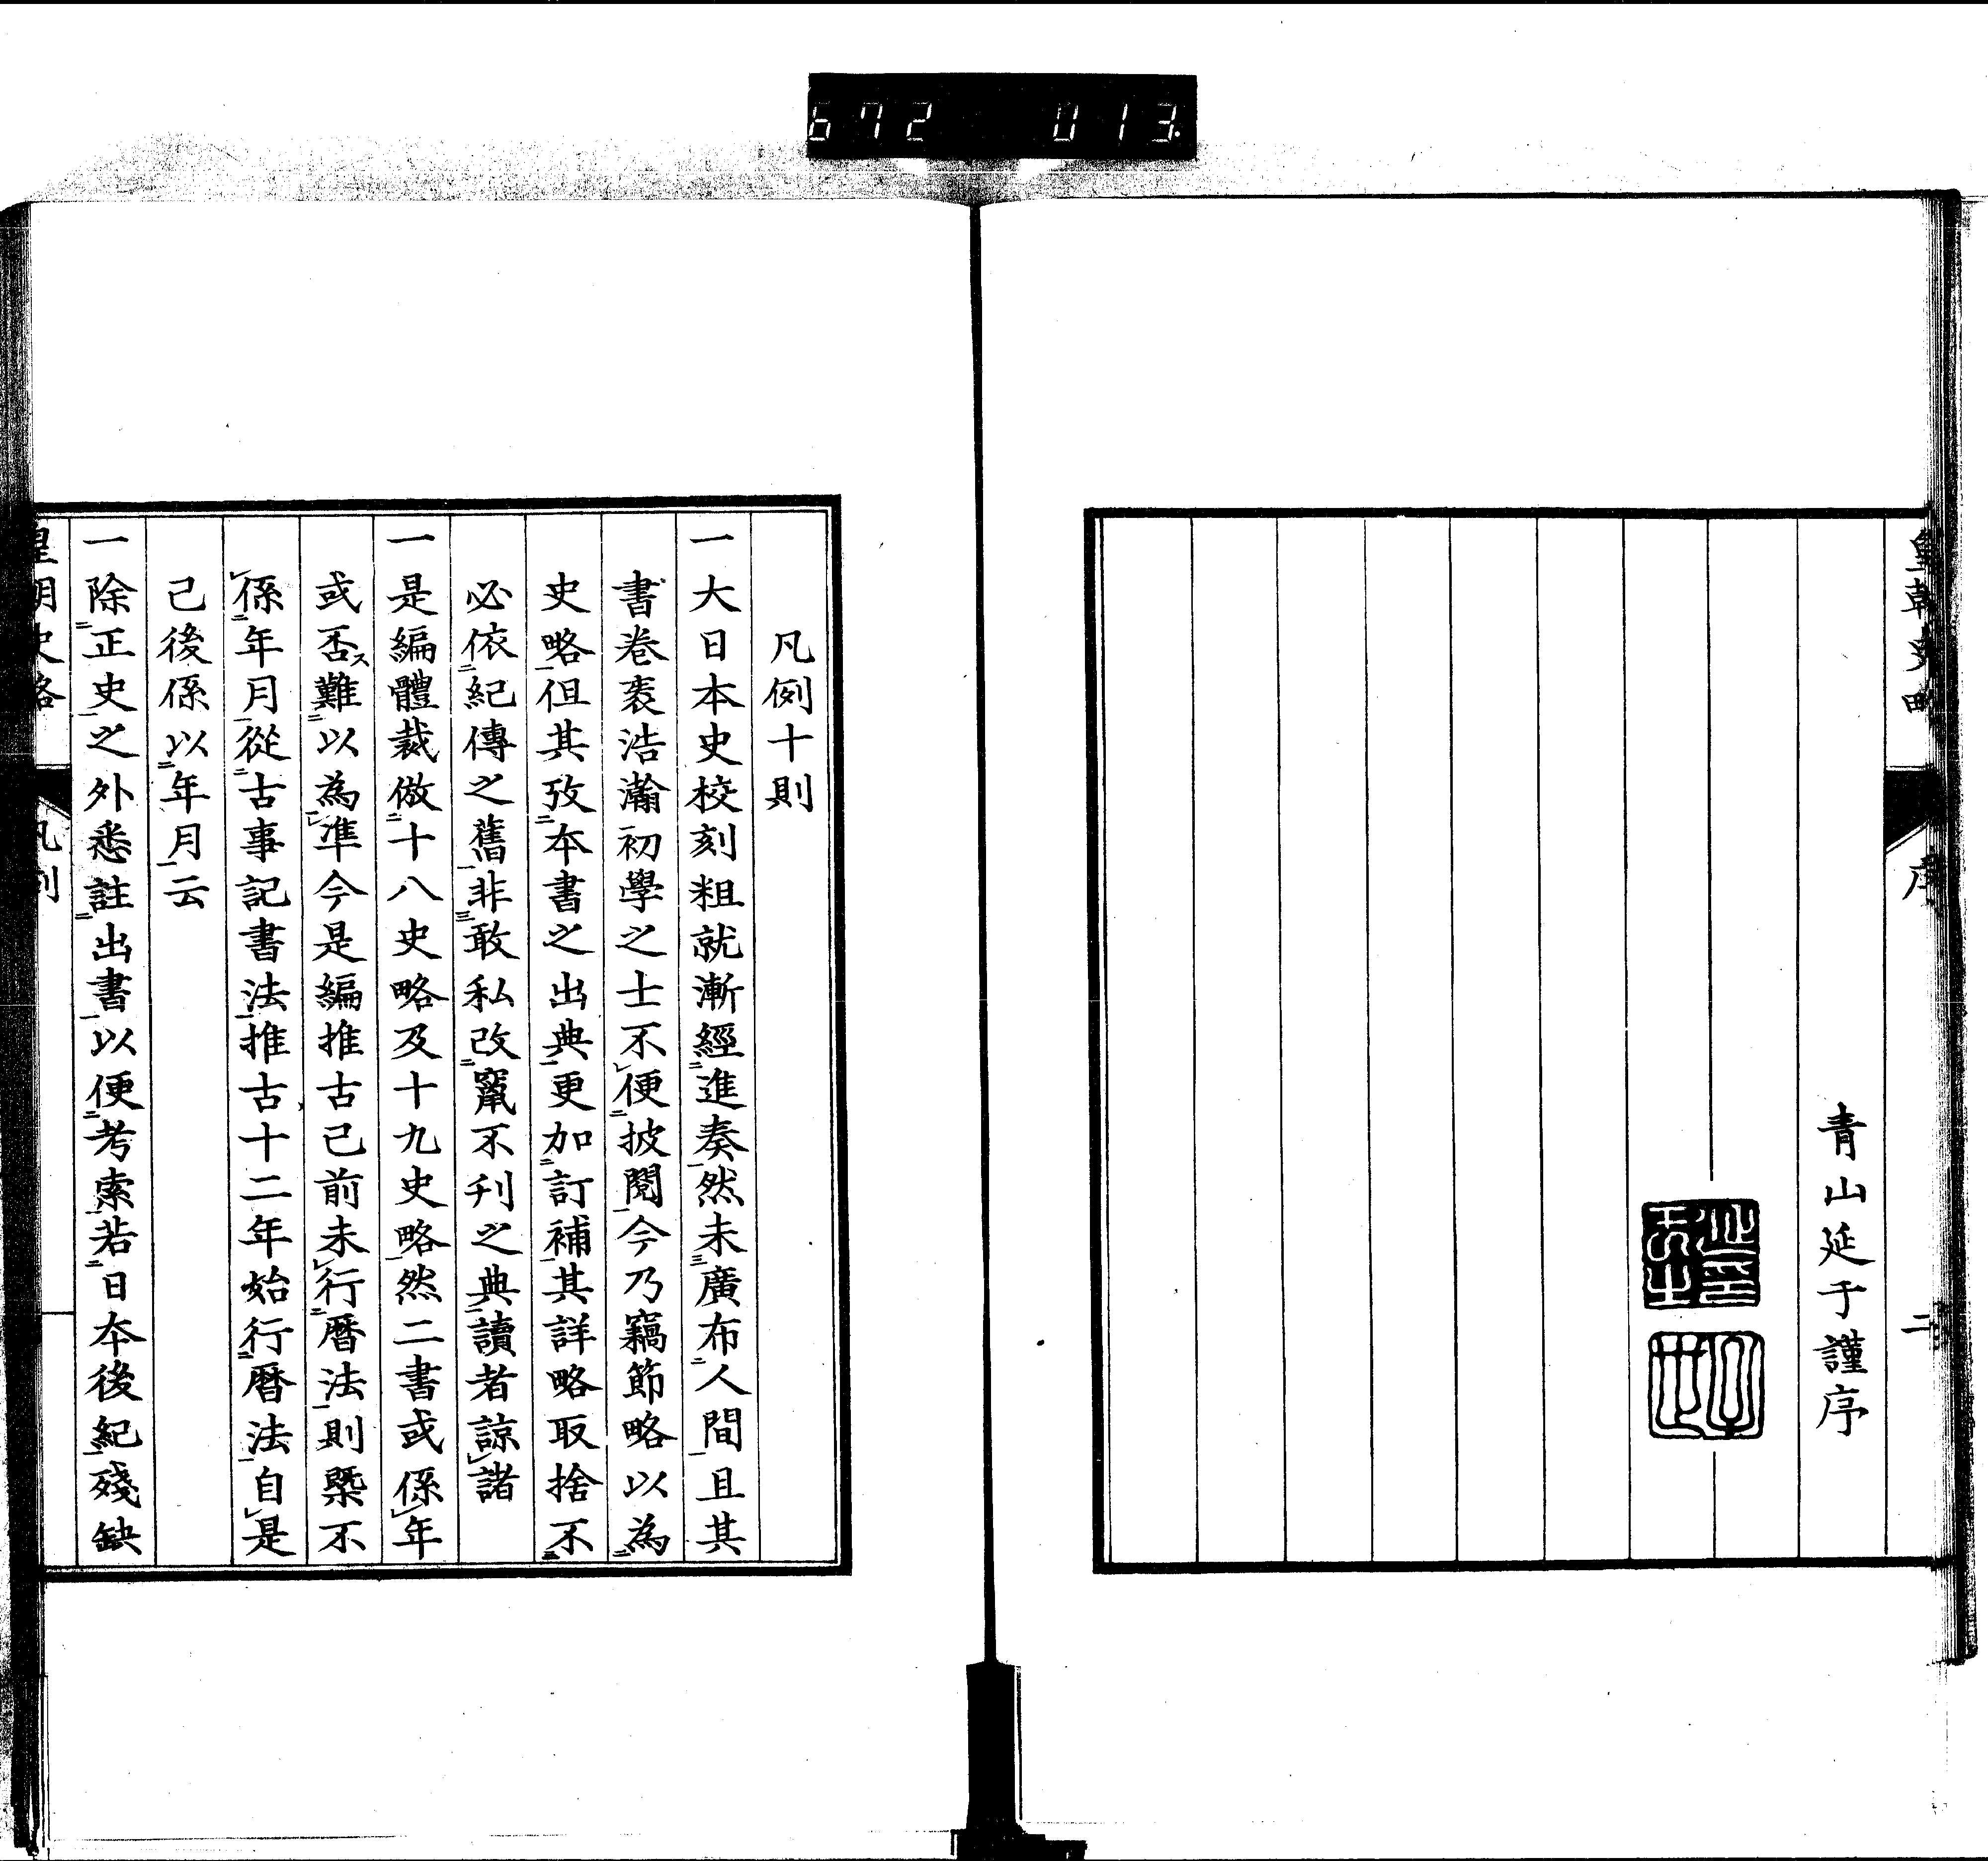 672 013
皇朝史略
序
二
青山延于謹序
凡例十則
一大日本史校刻粗就漸經二進奏一然未三廣布二人間一且其
書卷袠浩瀚初學之士不レ便二披閲一今乃竊節略以為二
史略一但其攷二本書之出典一更加二訂補一其詳略取捨不三
必依二紀傳之舊一非三敢私改二竄不刋之典一讀者諒レ諸
一是編體裁倣二十八史略及十九史略一然二書或係レ年
或否ス難三以為二準今是編推古已前未レ行二暦法一則槩不
レ係二年月一從二古事記書法一推古十二年始行二暦法一自レ是
已後係以二年月一云
一除二正史一之外悉註二出書一以便二考索一若二日本後紀一殘缺
皇朝史略
凡例